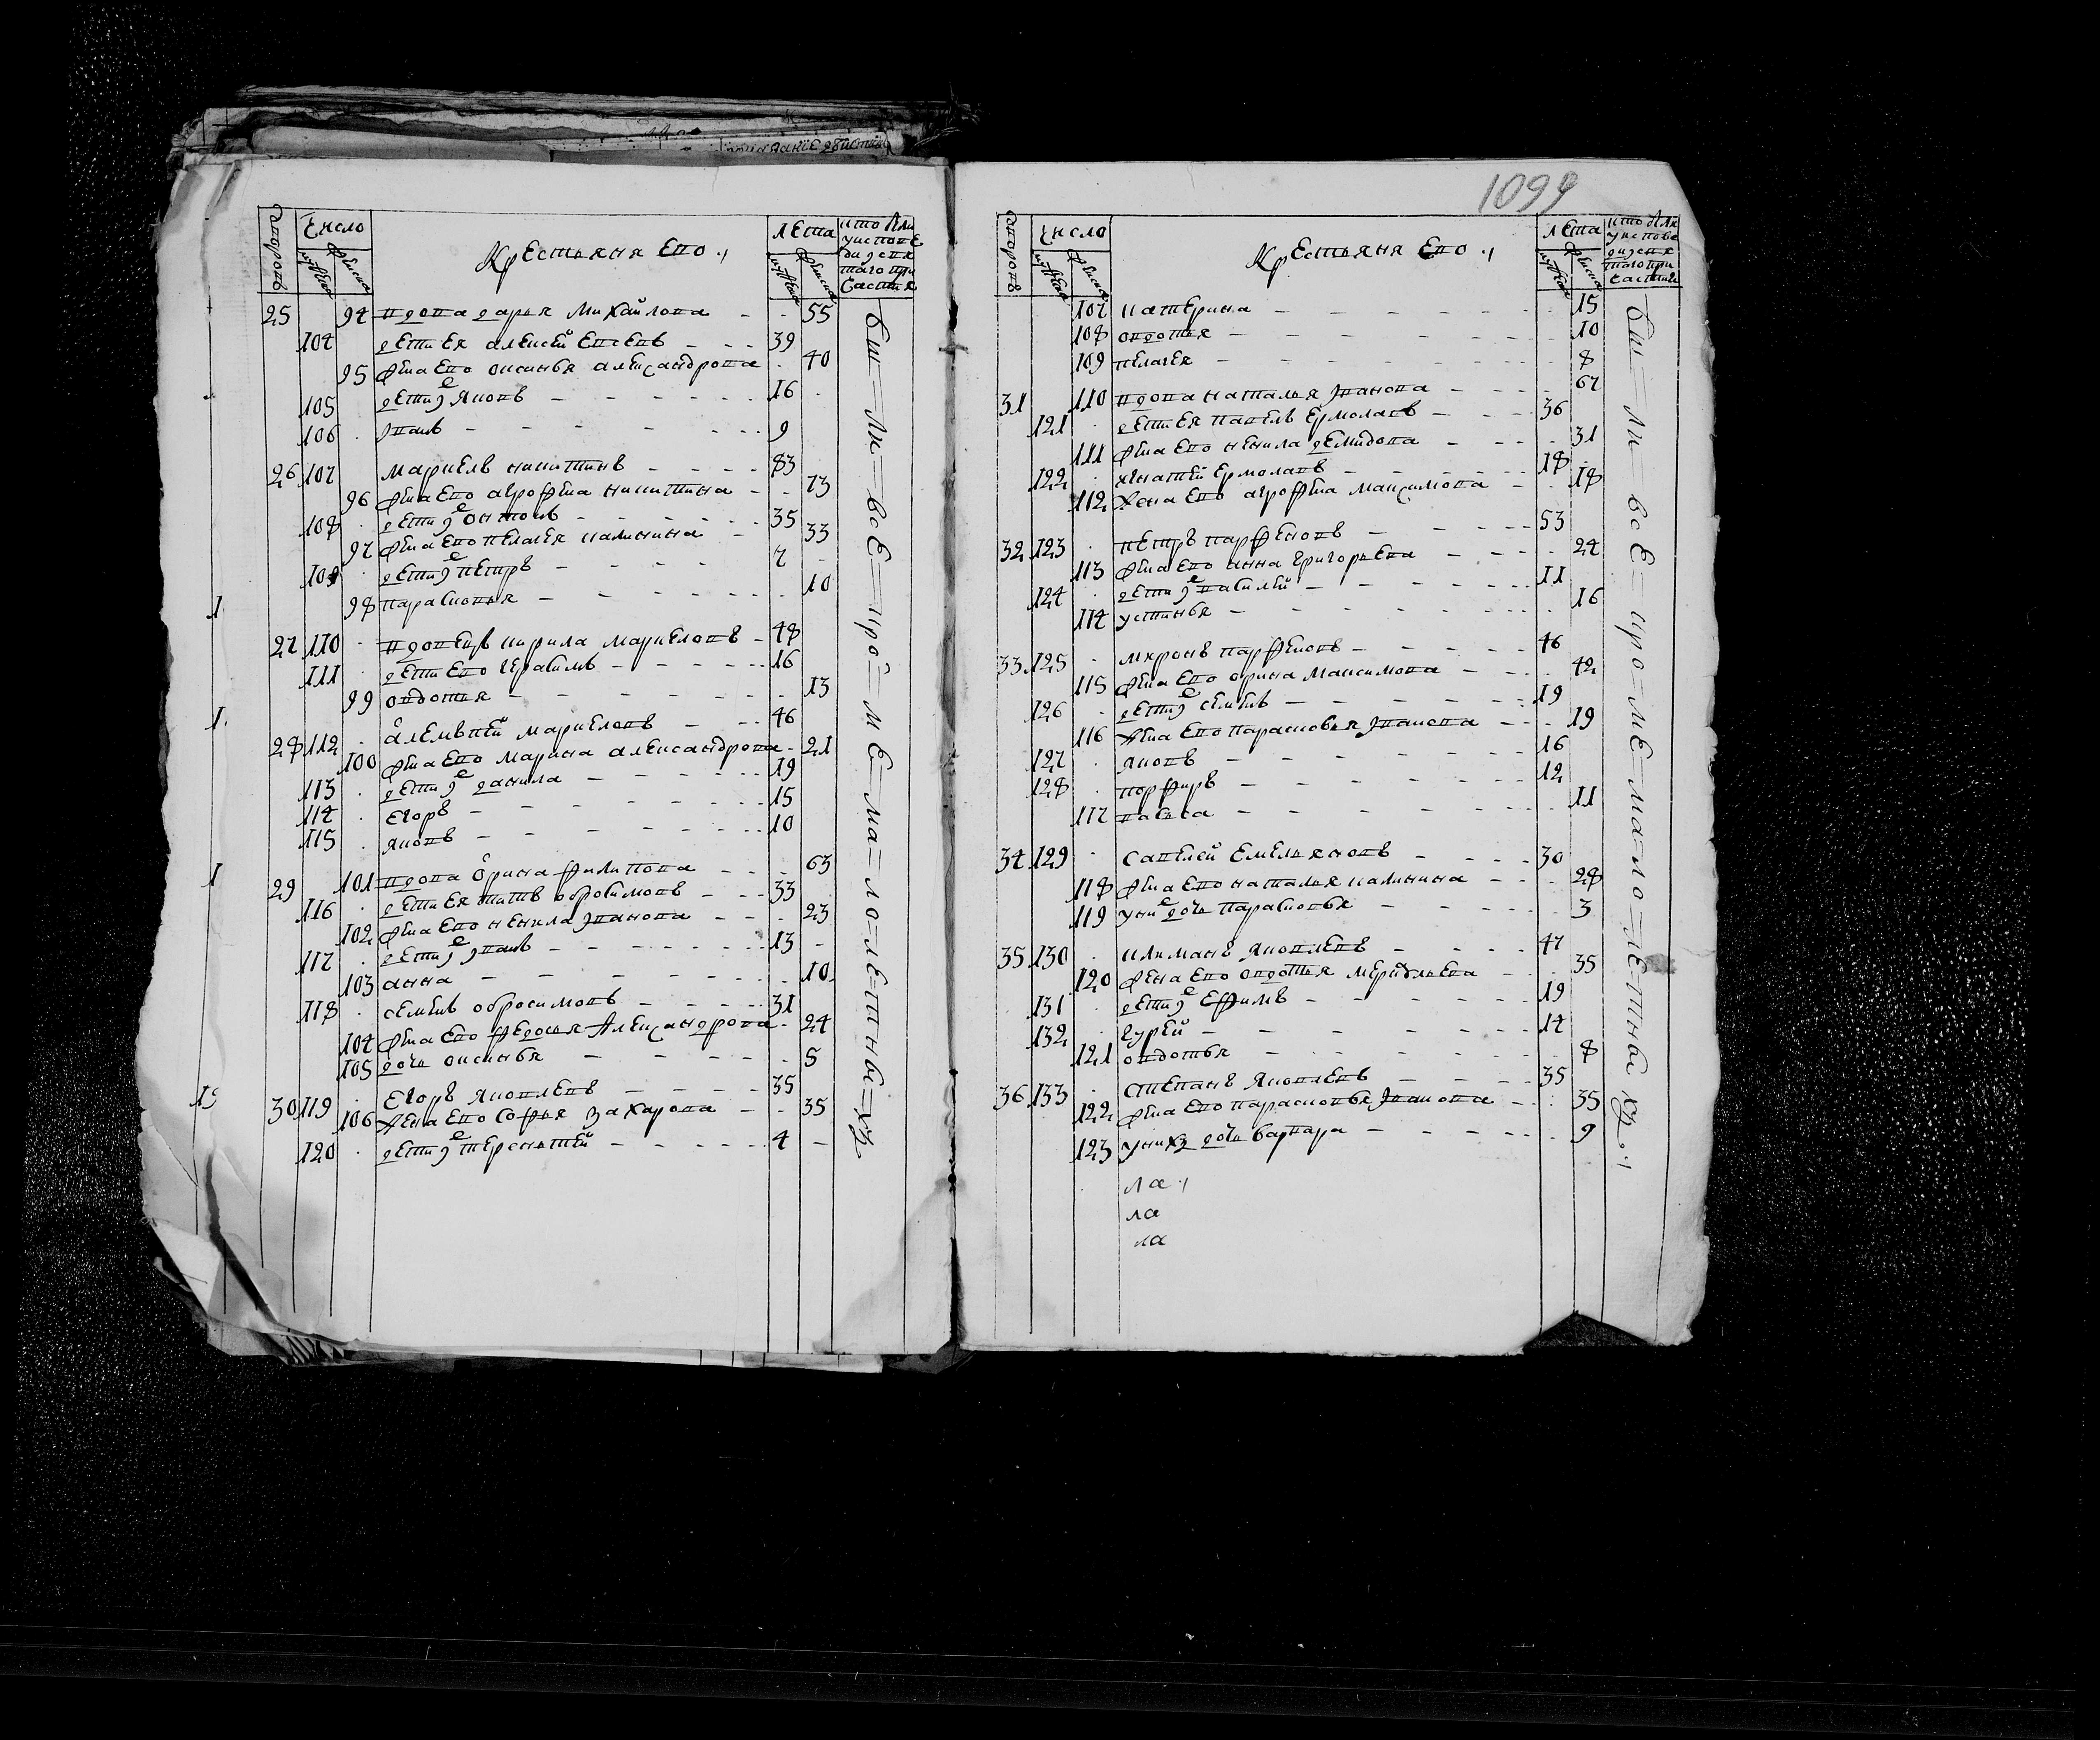 1099
Дворовъ
Число
мужеска
женска
Крестьяня ево
Лета
мужеска
женска
кто был
у испове
ди и свя
таго при
частия
25 94 вдова дарья Михайлова 55
104 дети ея алексей Евсевъ 39
95 жена ево аксинья александрова 40
105 дети их Яковъ 16
106 Iванъ 9
26 107 маркелъ никитинъ 83
96 жена ево агрофена никитина 73
108 дети их онтонъ 35
97 жена ево пелагея калинина 33
109 дети их петръ 7
98 парасковья 10
27 110 вдовецъ кирила маркеловъ 48
111 дети ево герасимъ 16
99 овдотья 13
28 112 маркеловъ 46
100 жена ево марина александрова 21
113 дети их данила 19
114 егоръ 15
115 яковъ 10
29 101 вдова орина филипова 63
116 дети ея титъ обросимовъ 33
102 жена ево ненила Iванова 23
117 дети их Iванъ 13
103 анна 10
118 семенъ обросимовъ 31
104 жена ево федосья Александрова 24
105 дочь аксинья 5
30 119 егоръ яковлевъ 35
106 жена ево софья захарова 35
120 дети их терентей 4
бы=ли=все=кро=ме=ма=ло=ле=тны=хъ
Дворовъ
Число
мужеска
женска
Крестьяня ево
Лета
мужеска
женска
кто были
у испове
ди и свя
таго при
частия
107 катерина 15
108 овдотья 10
109 пелагея 8
31 110 вдова наталья Iванова 67
121 дети ея павелъ ермолаевъ 36
111 жена ево ненила демидова 31
122 игнатей ермолаевъ 18
112 жена ево агрофена максимова 18
32 123 петръ парфеновъ 53
113 жена ево анна григорьева 24
124 дети их василей 11
114 устинья 16
33 125 миронъ парфеновъ 46
115 жена ево орина максимова 42
126 дети их семенъ 19
116 жена ево парасковья Iванова 19
127 яковъ 16
128 порфиръ 12
117 васса 11
34 129 савелей емельяновъ 30
118 жена ево наталья калинина 28
119 у них дочь парасковья 3
35 130 климанъ яковлевъ 47
120 жена ево овдотья 35
131 дети их ефимъ 19
132 гурей 14
121 овдотья 8
36 133 степанъ яковлевъ 35
122 жена ево парасковья Iванова 35
123 у нихъ дочь варвара 9
ла
ла
ла
бы=ли=все=кро=ме=ма=ло=ле=тны хъ